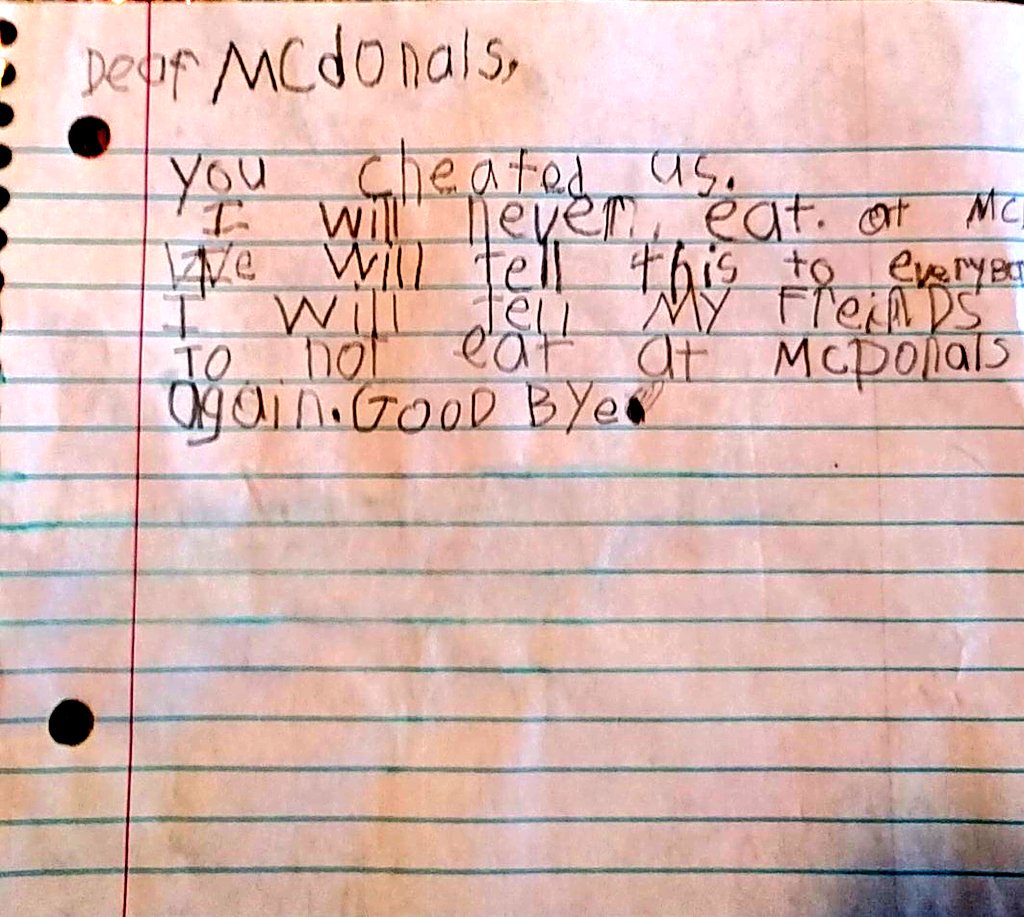 Dear McdOnals,
you cheated us.
I will never. eat. at Mc
We will tell this to everyBo
I will tell My FreinDs
To not eat at McDonals
again. GOOD BYe.